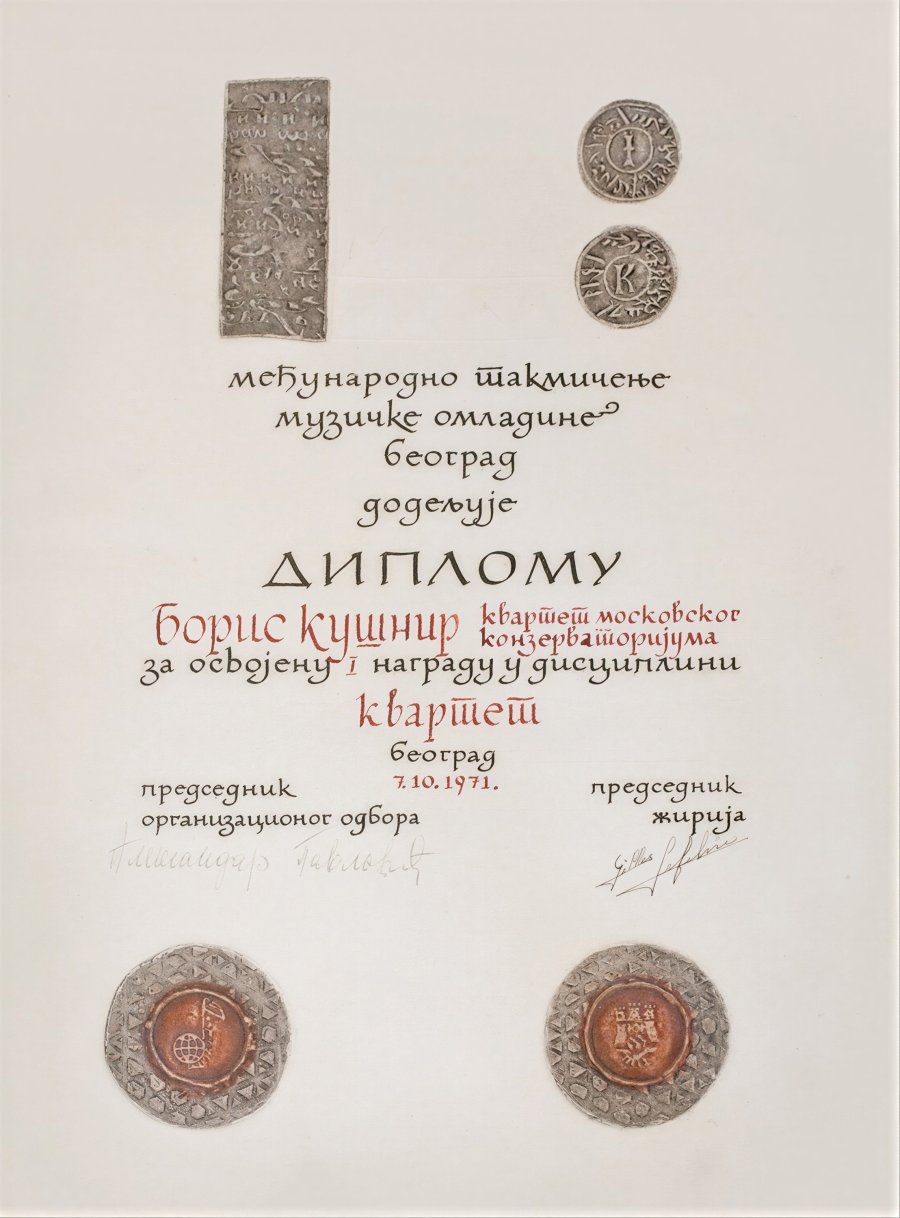 међународно такмичење
музичке омладине
београд
додељује
ДИПЛОМУ
Борис Кушнир квартет московског
конзерваторијума
за освојену I награду у дисциплини
квартет
београд
7.10.1971.
председник
организационог одбора
председник
жирија
Александар Павловић
Gilles
I
K